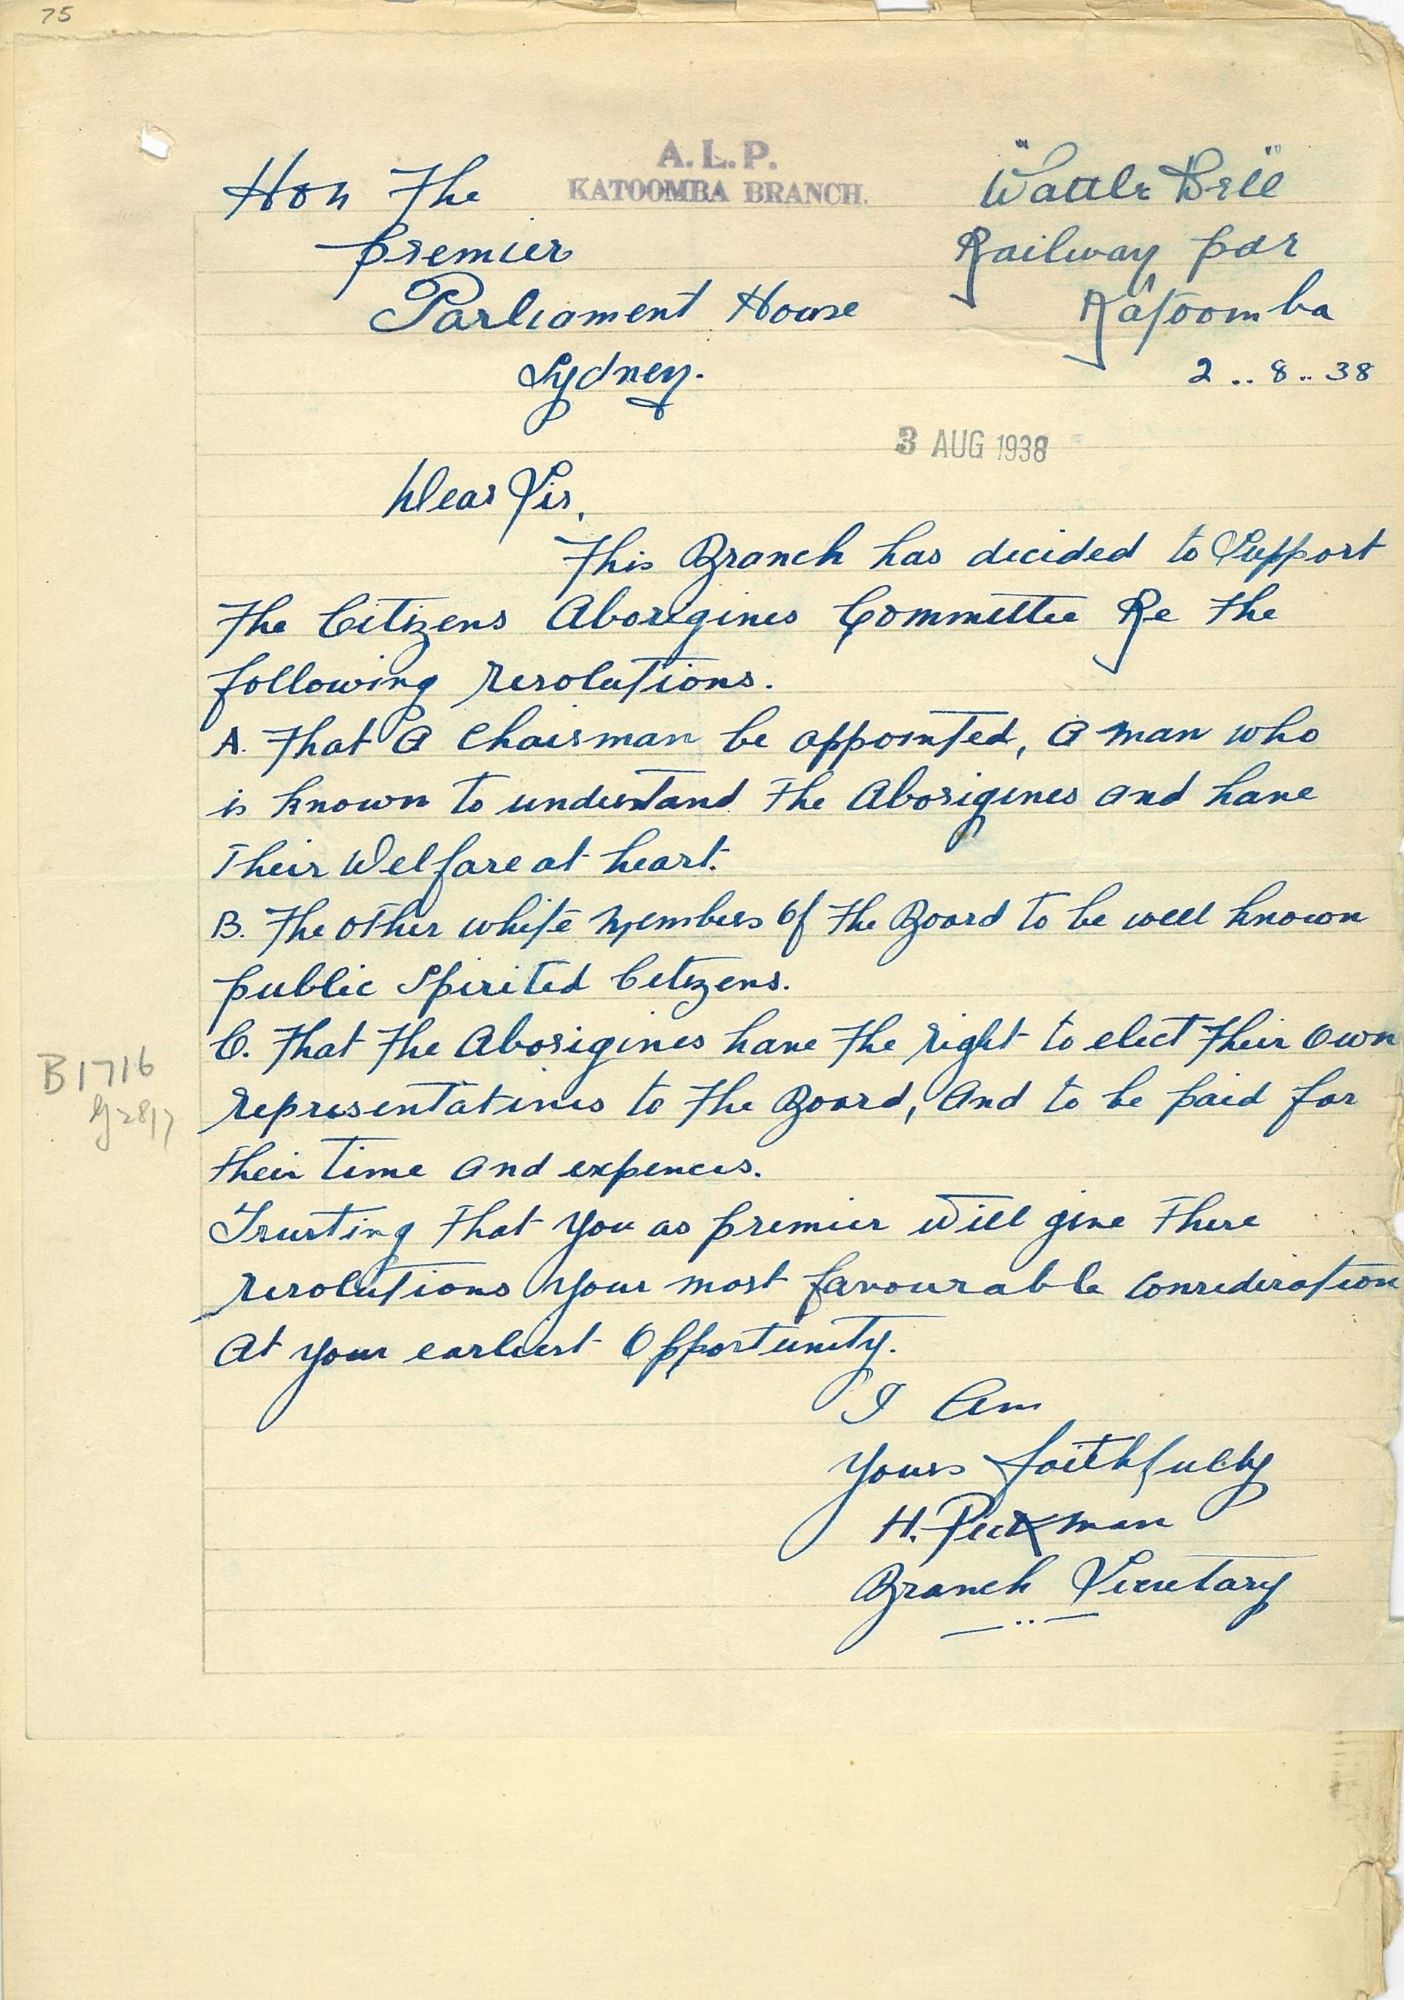 75
A.L.P.
KATOOMBA BRANCH.
Hon The
premier
Parliament House
Sydney.
"Wattle Dell"
Railway pde
Katoomba
2..8..38
3 AUG 1938
Dear Sir,
This Branch has decided to Support
The Citizens Aborigines Committee Re The
following resolutions.
A. That A Chairman be appointed, A man who
is known to understand The Aborigines and have
Their Welfare at heart.
B. The other white Members Of The Board to be well known
public Spirited Citizens.
C. That The Aborigines have The right to elect Their own
representatives to The Board, And to be paid for
Their time and expences.
Trusting That You as premier Will give These
resolutions Your most favourable Consideration
At your earliest Opportunity.
I Am
Yours faithfully
H. Peckman
Branch Secretary
B1716